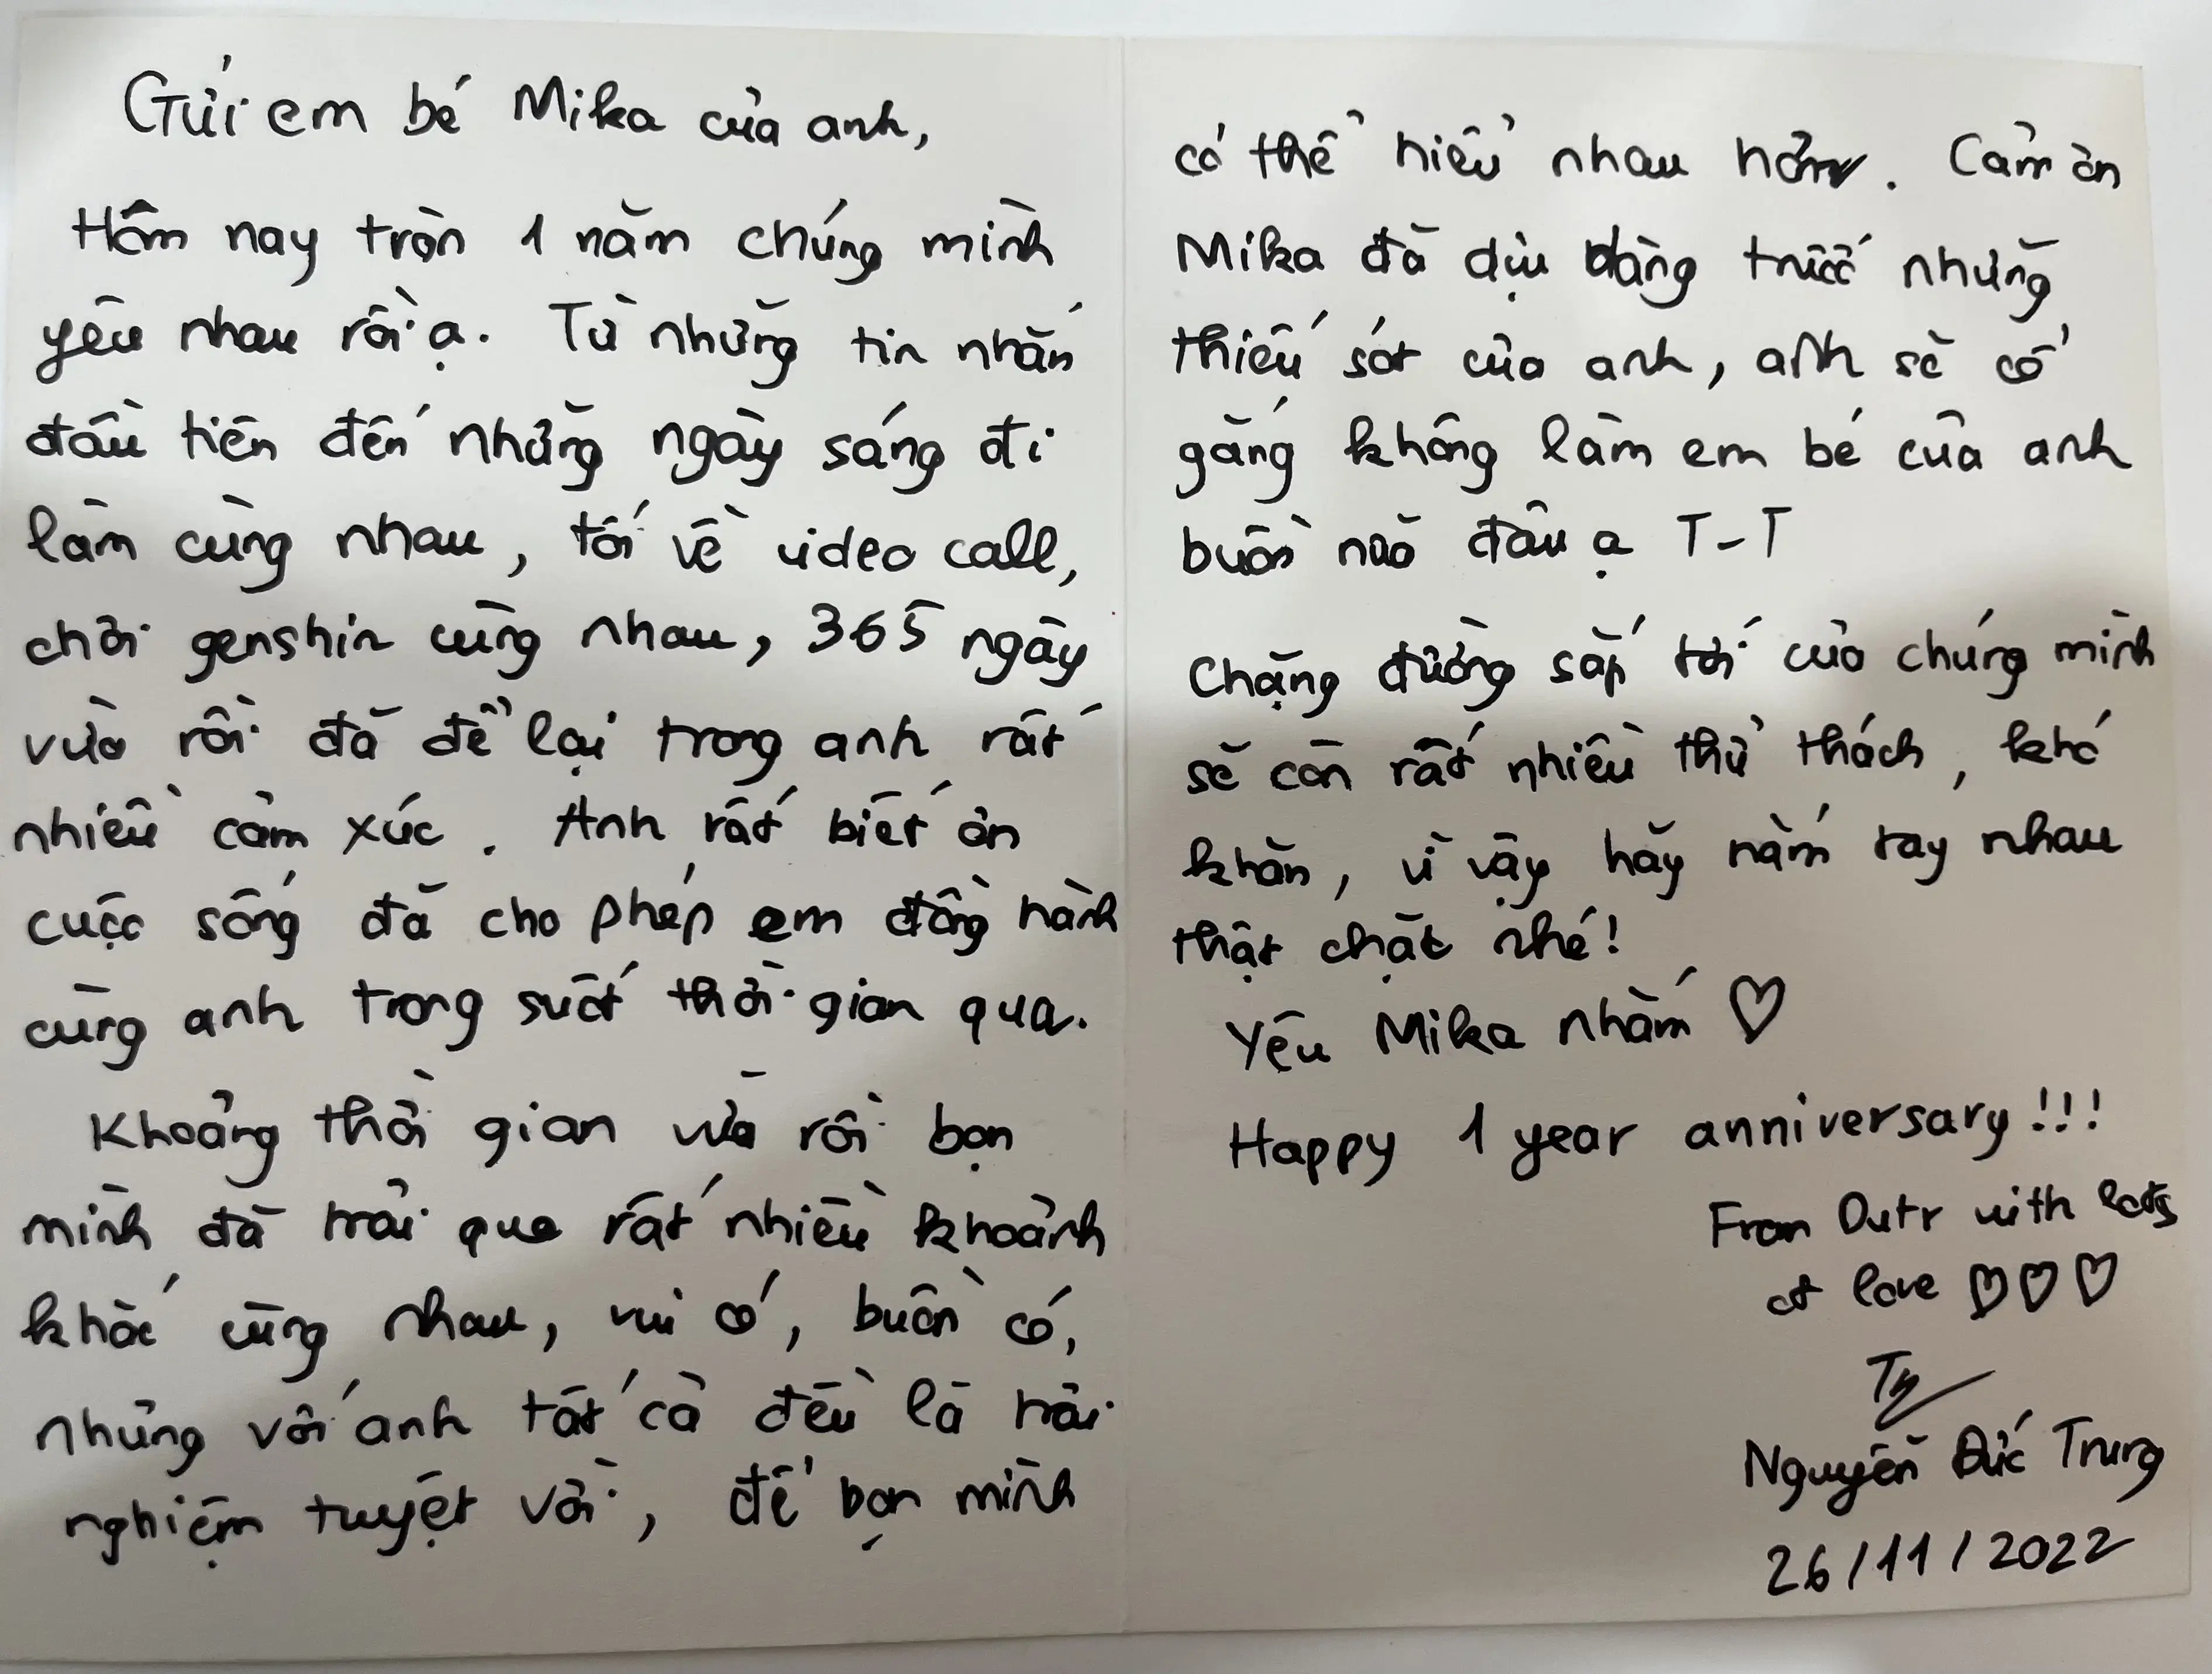 Gửi em bé Mika của anh,
Hôm nay tròn 1 năm chúng mình
yêu nhau rồi ạ. Từ những tin nhắn
đầu tiên đến những ngày sáng đi
làm cùng nhau, tối về video call,
chơi genshin cùng nhau, 365 ngày
vừa rồi đã để lại trong anh rất
nhiều cảm xúc. Anh rất biết ơn
cuộc sống đã cho phép em đồng hành
cùng anh trong suốt thời gian qua.
Khoảng thời gian vừa rồi bọn
mình đã trải qua rất nhiều khoảnh
khắc cùng nhau, vui có, buồn có,
nhưng với anh tất cả đều là trải
nghiệm tuyệt vời, để bọn mình
có thể hiểu nhau hơn. Cảm ơn
Mika đã dịu dàng trước những
thiếu sót của anh, anh sẽ cố
gắng không làm em bé của anh
buồn nữa đâu ạ T-T
Chặng đường sắp tới của chúng mình
sẽ còn rất nhiều thử thách, khó
khăn, vì vậy hãy nắm tay nhau
thật chặt nhé!
Yêu Mika nhắm ♡
Happy 1 year anniversary!!!
From Dutr with lots
of love ♡♡♡
Nguyễn Đức Trung
26/11/2022